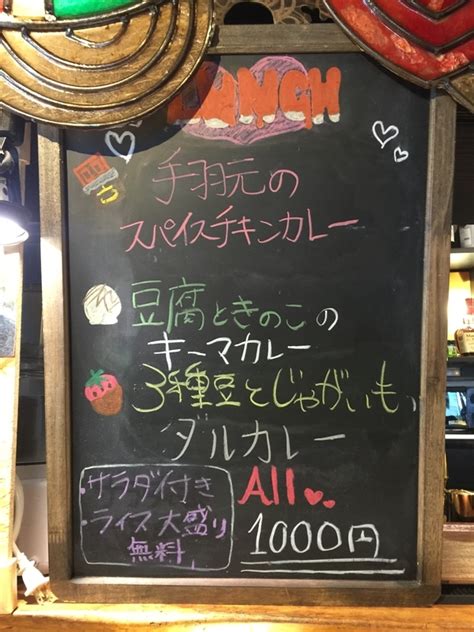 LUNCH
手羽元の
スパイスチキンカレー
豆腐ときのこの
キーマカレー
3種豆とじゃがいも
ダルカレー
・サラダ付き
・ライス大盛り
無料
All
1000円